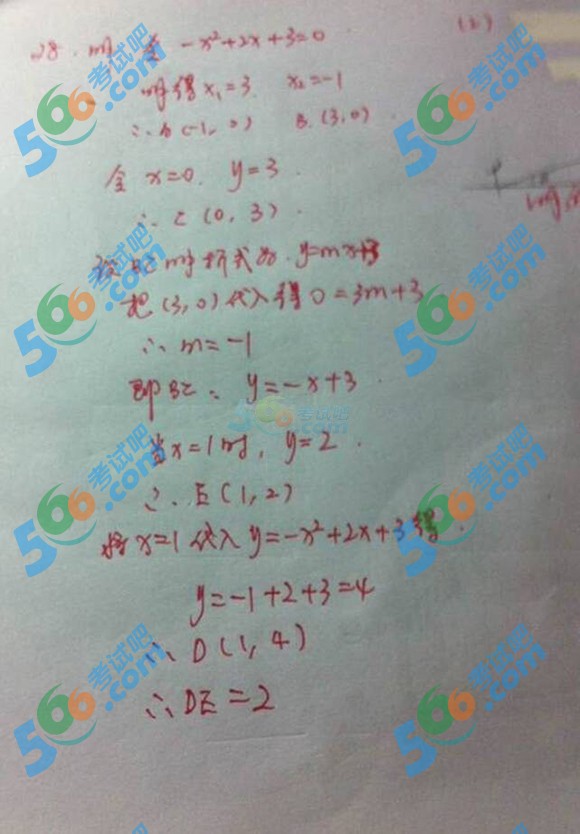 28. 解: 令 -x²+2x+3=0
(2)
解得 x₁=3. x₂=-1
∴A(-1, 0) B(3,0).
令 x=0. y=3.
∴ C (0, 3).
设BC解析式为. y=mx+3
把(3,0)代入得 0=3m+3
∴ m=-1
即BC: y=-x+3.
当x=1时, y=2.
∴ E(1,2)
将x=1代入 y=-x²+2x+3得.
y=-1+2+3=4
∴ D(1,4)
∴ DE=2
566考试吧
.com
566考试吧
.com
566考试吧
.com
566考试吧
.com
566考试吧
.com
566考试吧
.com
566考试吧
.com
566考试吧
.com
566考试吧
.com